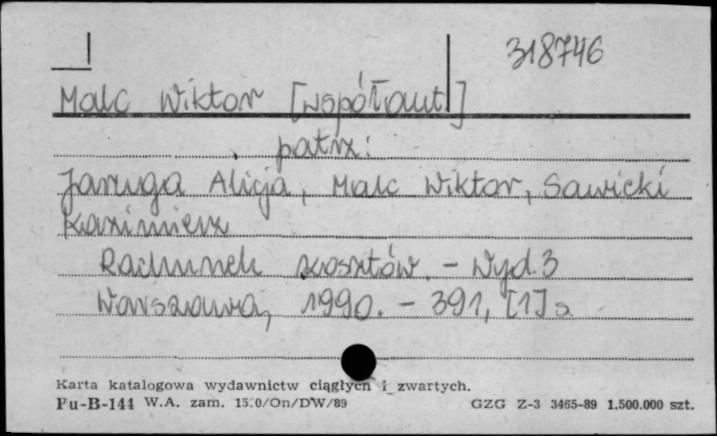 318746
Malc Wiktor [współaut]
patrz:
Jaruga Alicja, Malc Wiktor, Sawicki
Kazimierz
Rachunek kosztów. - Wyd. 3
Warszawa, 1990. - 391, [1] s.
Karta katalogowa wydawnictw ciągłych i zwartych.
Pu-B-144 W.A. zam. 1530/On/DW/89 GZG Z-3 3465-89 1.500.000 szt.